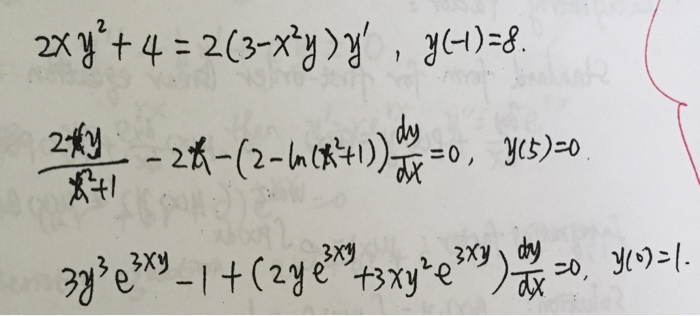 2xy² + 4 = 2(3-x²y)y', y(-1)=8.
2xy/(x²+1) - 2x - (2-ln(x²+1)) dy/dx = 0, y(5)=0.
3y³e^{3xy} - 1 + (2ye^{3xy} + 3xy²e^{3xy}) dy/dx = 0, y(0)=1.